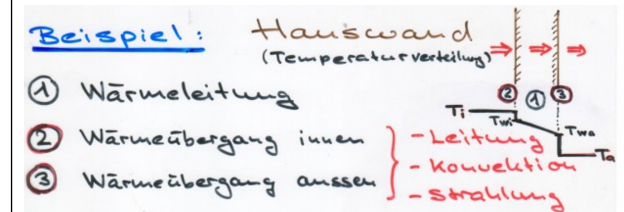 Beispiel: Hauswand
(Temperaturverteilung)
① Wärmeleitung
② Wärmeübergang innen
③ Wärmeübergang aussen
- Leitung
- Konvektion
- Strahlung
② ① ③
Ti Twi Twa Ta